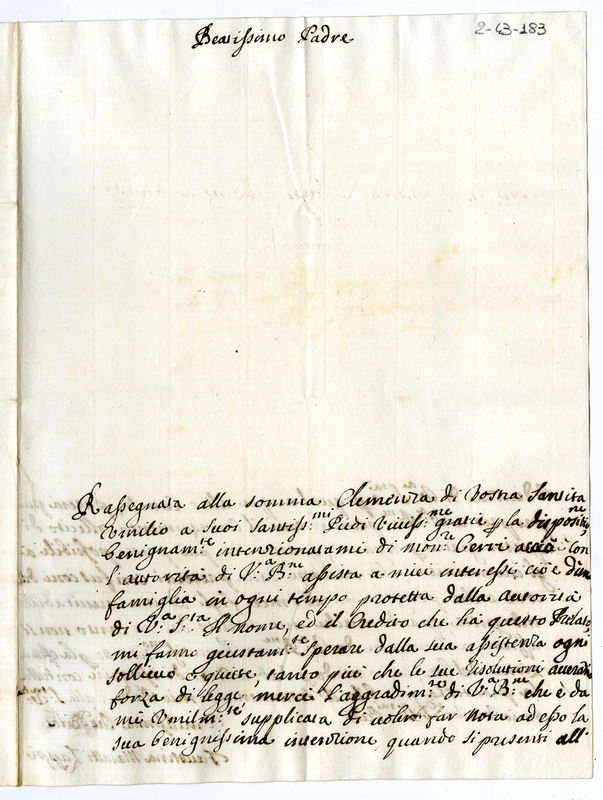 Beatissimo Padre
2-43-183
Rassegnata alla somma Clemenza di Vostra Santità
Umilio a suoi Santiss.mi Piedi Viviss.me gratie p la dispositne
benignam.te intenzionatami di mon.re Cerri acciò con
l'autorità di V.a B.ne assista a miei interessi, cioè d'una
famiglia in ogni tempo protetta dalla autorità
di V.a S.ta Il nome, ed il Credito che ha questo Prelato,
mi fanno giustam.te Sperare dalla sua assistenza ogni
sollievo e quiete, tanto più che le sue risolutioni averan
forza di legge mercè l'aggradim.to di V.a B.ne che è da
me Umilm.te supplicata di voler far nota ad esso la
sua benignissima intenzione quando si presenti all